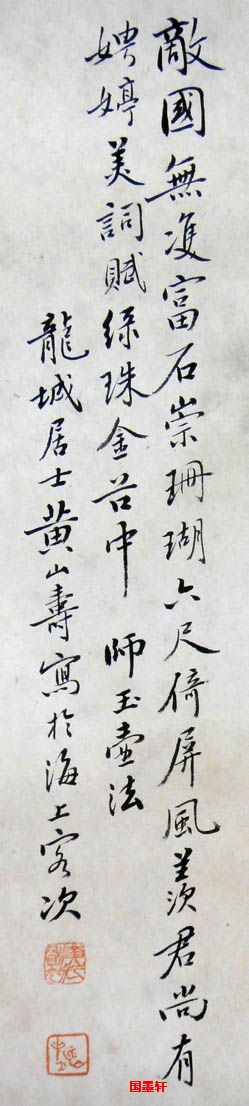 敵國無双富石崇珊瑚六尺倚屏風羨君尚有
娉婷美詞賦綠珠金谷中 師玉壺法
龍城居士黃山壽寫於海上客次
国墨轩